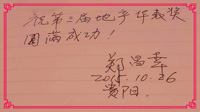 祝第三届地学年教奖
圆满成功！
郑昌幸
2015.10.26
贵阳.